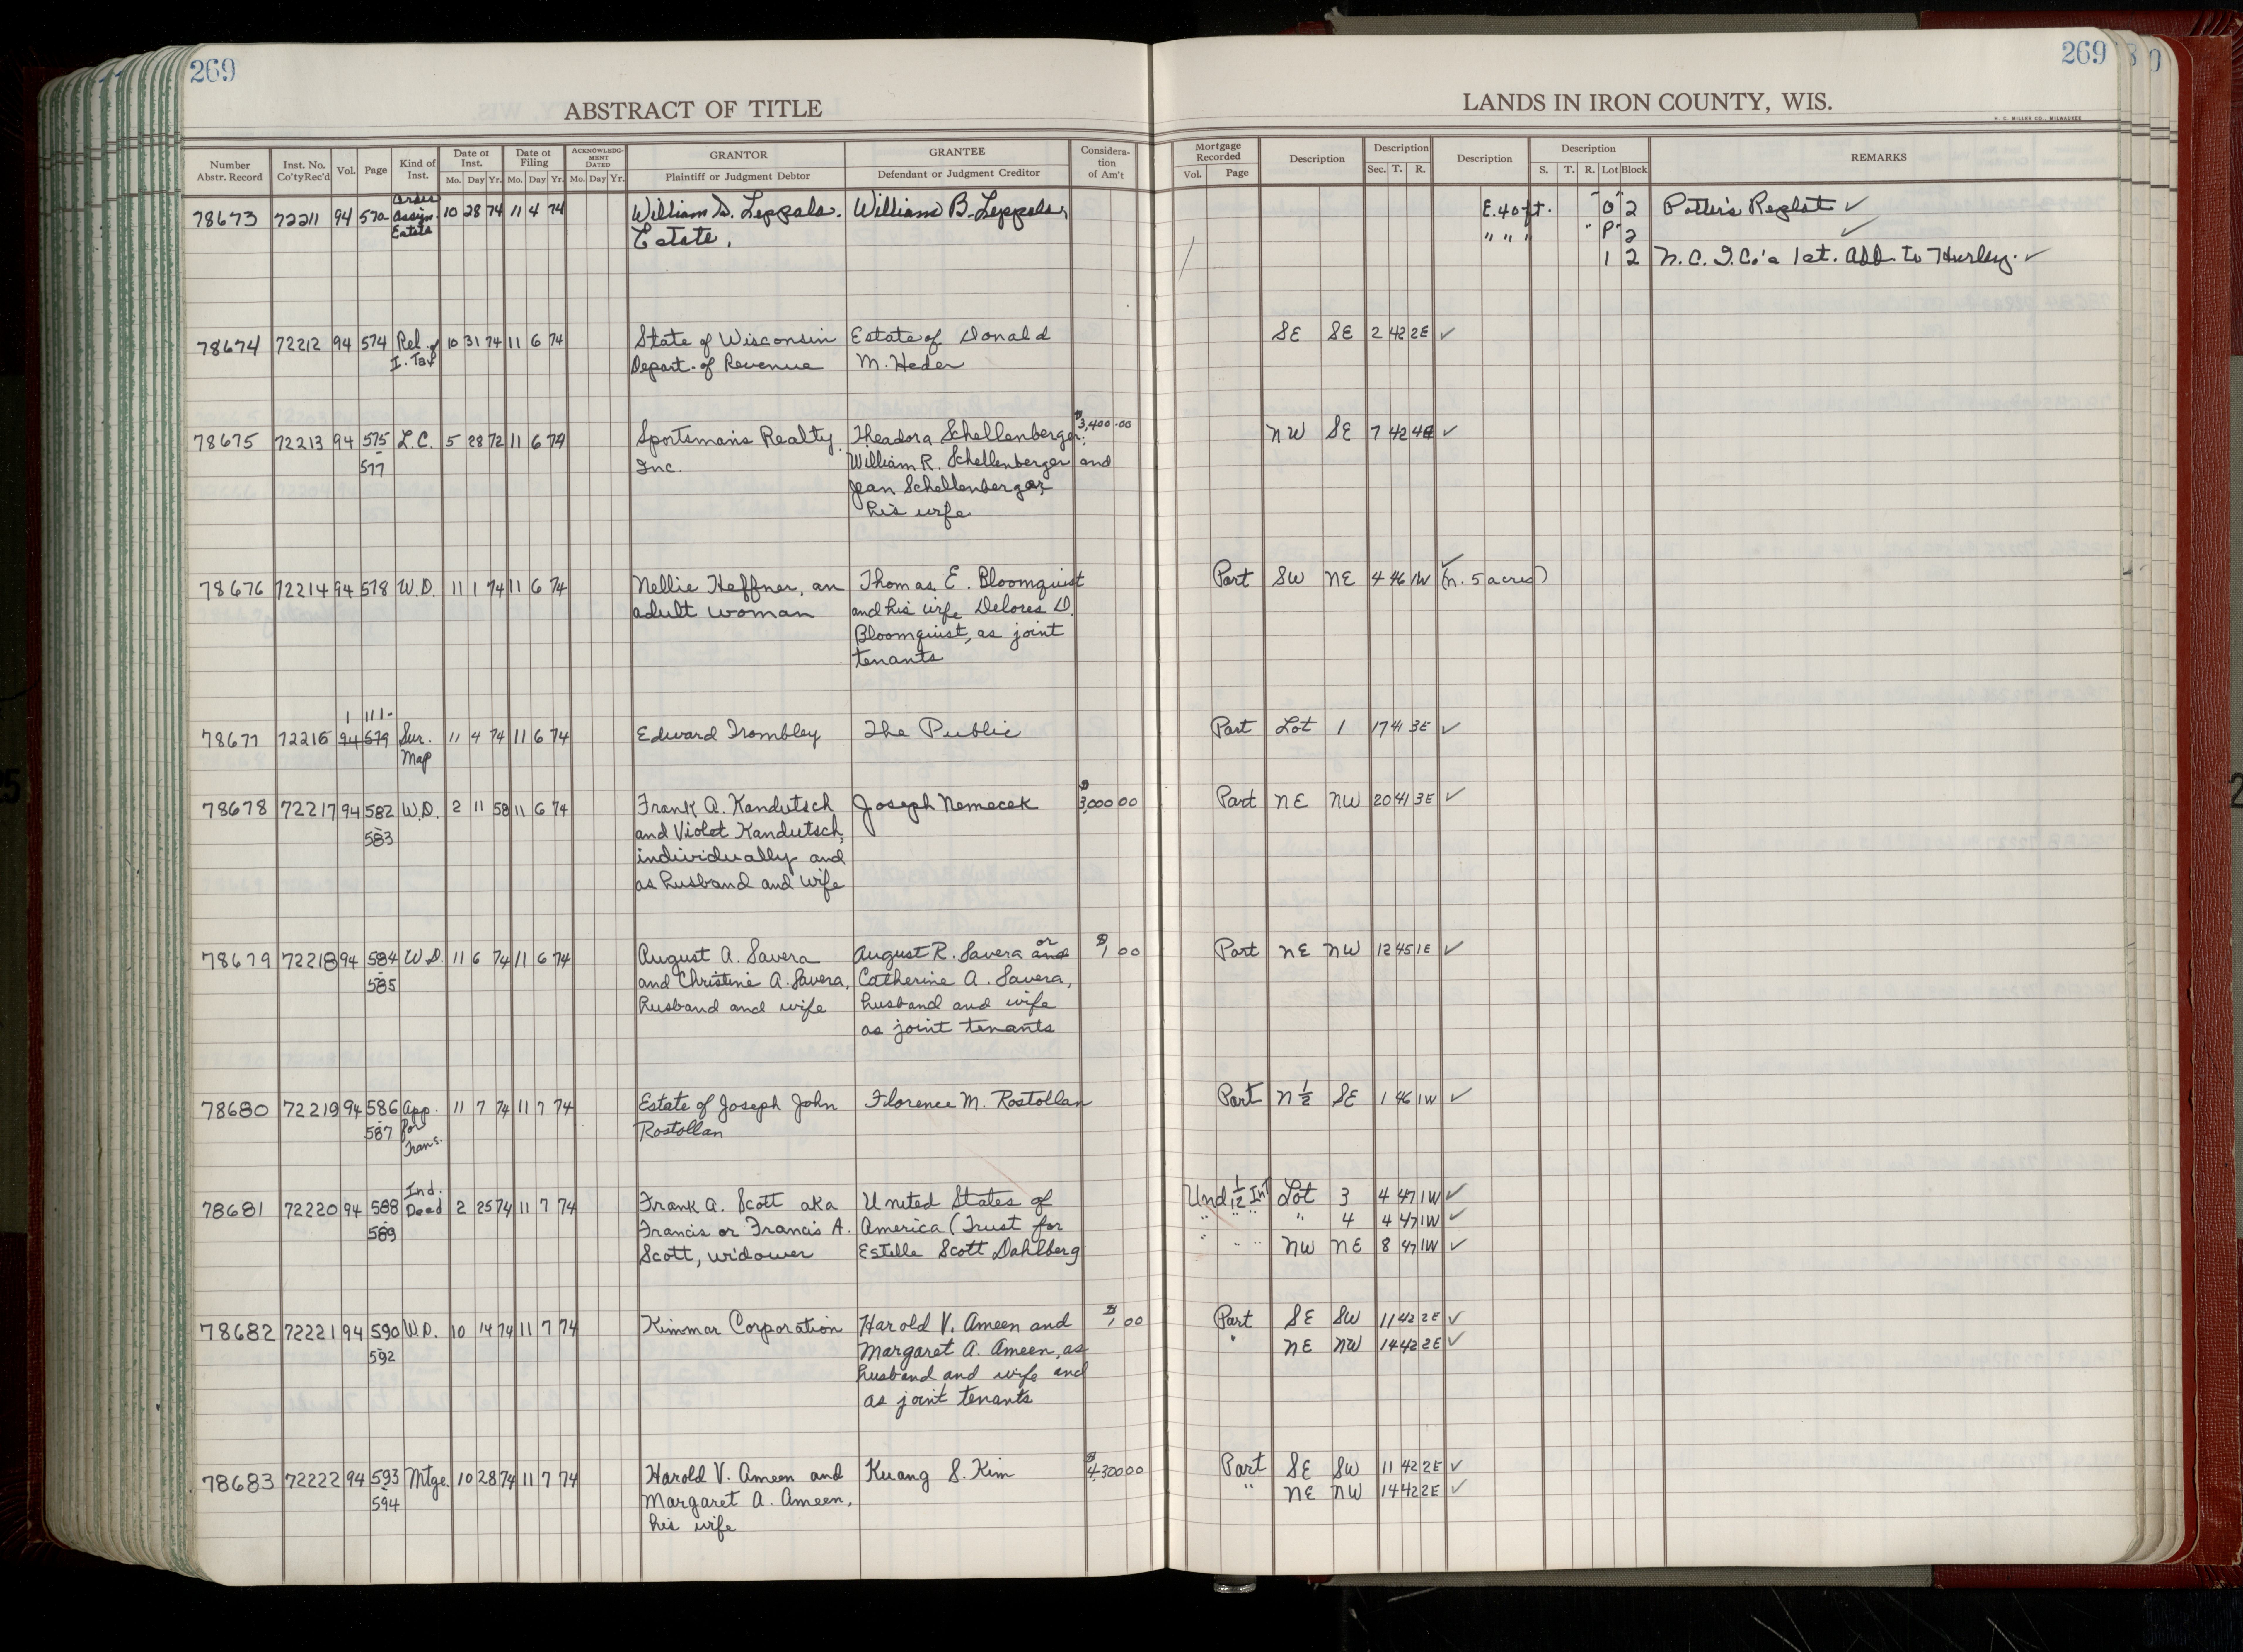 269
269
ABSTRACT OF TITLE
LANDS IN IRON COUNTY, WIS.
H. C. MILLER CO., MILWAUKEE
Number Abstr. Record Inst. No. Co'ty Rec'd Vol. Page Kind of Inst. Date of Inst. Mo. Day Yr. Date of Filing Mo. Day Yr. ACKNOWLEDGMENT DATED Mo. Day Yr. GRANTOR Plaintiff or Judgment Debtor GRANTEE Defendant or Judgment Creditor Consideration of Am't Mortgage Recorded Vol. Page Description Description Sec. T. R. Description Description S. T. R. Lot Block REMARKS
78673 72211 94 572 Order Assign. Estate 10 28 74 11 4 74 William D. Leppala William B. Leppala, E. 40 ft. "O" 2 Potter's Replat ✓
Estate, " " " "P" 2 ✓
1 2 N.C.I.Co's 1st. Add. to Hurley. ✓
78674 72212 94 574 Rel. of 10 31 74 11 6 74 State of Wisconsin Estate of Donald SE SE 2 42 2E ✓
I. Tax Depart. of Revenue M. Heder
78675 72213 94 575 L.C. 5 28 72 11 6 74 Sportsman's Realty Theadora Schellenberger; $3,400.00 NW SE 7 42 4E ✓
- 577 Inc. William R. Schellenberger and
Jean Schellenberger,
his wife
78676 72214 94 578 W.D. 11 1 74 11 6 74 Nellie Heffner, an Thomas E. Bloomquist Part SW NE 4 46 1W ✓ (N. 5 acres)
adult woman and his wife Delores D.
Bloomquist, as joint
tenants
1 111-
78677 72216 94 579 Sur. 11 4 74 11 6 74 Edward Trombley The Public Part Lot 1 17 41 3E ✓
Map
78678 72217 94 582 W.D. 2 11 58 11 6 74 Frank A. Kandutsch Joseph Nemecek $3,000 00 Part NE NW 20 41 3E ✓
- 583 and Violet Kandutsch,
individually and
as husband and wife
78679 72218 94 584 W.D. 11 6 74 11 6 74 August A. Savera August R. Savera and or $1 00 Part NE NW 12 45 1E ✓
- 585 and Christine A. Savera, Catherine A. Savera,
husband and wife husband and wife
as joint tenants
78680 72219 94 586 App. 11 7 74 11 7 74 Estate of Joseph John Florence M. Rostollan Part N ½ SE 1 46 1W ✓
- 587 for Trans. Rostollan
78681 72220 94 588 Ind. Deed 2 25 74 11 7 74 Frank A. Scott aka United States of Und 1/12 Int Lot 3 4 47 1W ✓
- 589 Francis or Francis A. America (Trust for " " " " 4 4 47 1W ✓
Scott, widower Estelle Scott Dahlberg " " " NW NE 8 47 1W ✓
78682 72221 94 590 W.D. 10 14 74 11 7 74 Kimmar Corporation Harold V. Ameen and $1 00 Part SE SW 11 42 2E ✓
- 592 Margaret A. Ameen, as " NE NW 14 42 2E ✓
husband and wife and
as joint tenants
78683 72222 94 593 Mtge. 10 28 74 11 7 74 Harold V. Ameen and Kuang S. Kim $4,300 00 Part SE SW 11 42 2E ✓
- 594 Margaret A. Ameen, " NE NW 14 42 2E ✓
his wife